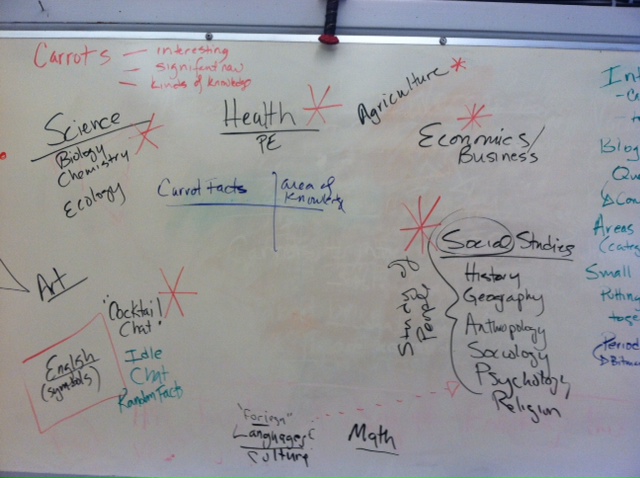 Carrots — interesting
— significant/new
— kinds of knowledge
Science
Biology
Chemistry
Ecology
Health
PE
Agriculture
Economics/
Business
Carrot Facts
area of
Knowledge
Social Studies
History
Geography
Anthropology
Sociology
Psychology
Religion
Study of
People
Art
"Cocktail
Chat"!
Idle
Chat
Random Facts
English
(symbols)
"Foreign"
Languages
Culture
Math
Int
Blog
Que
Areas
(cate
Small
Putting
toge
Period